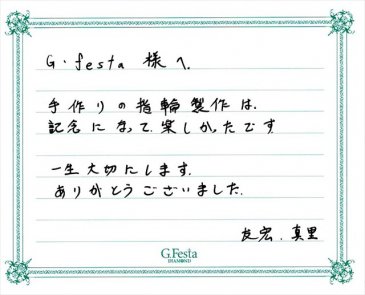 G.festa 様へ.
手作りの指輪製作は.
記念になって.楽しかったです
一生大切にします.
ありがとうございました.
友宏.真里
G.Festa
DIAMOND